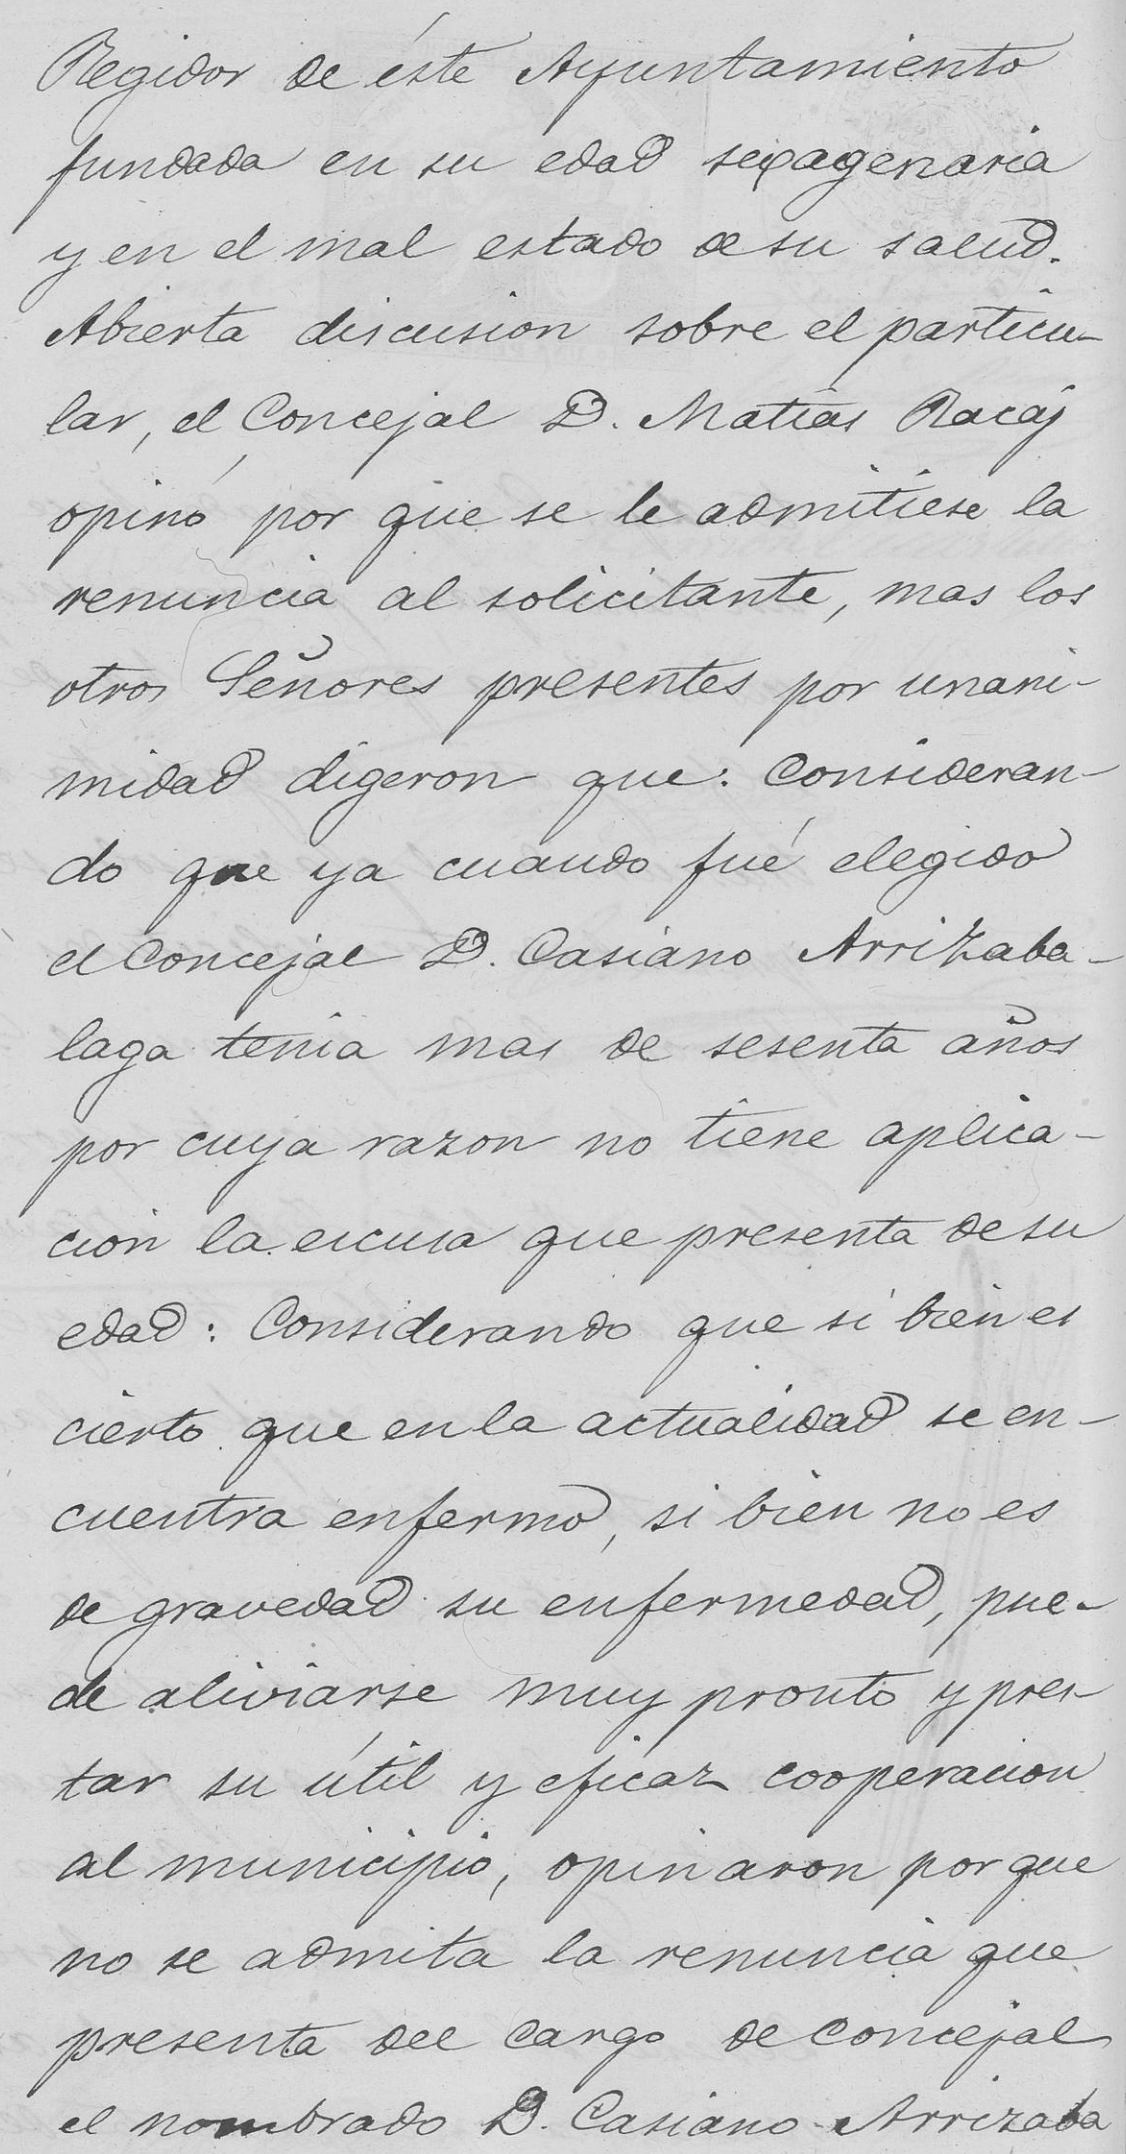 Regidor de éste Ayuntamiento
fundada en su edad sexagenaria
y en el mal estado de su salud.
Abierta discusion sobre el particu-
lar, el Concejal D. Matias Racaj
opinó por que se le admitiese la
renuncia al solicitante, mas los
otros Señores presentes por unani-
midad digeron que: Consideran-
do que ya cuando fué elegido
el Concejal D. Casiano Arrizaba-
laga tenia mas de sesenta años
por cuya razon no tiene aplica-
cion la escusa que presenta de su
edad: Considerando que si bien es
cierto que en la actualidad se en-
cuentra enfermo, si bien no es
de gravedad su enfermedad, pue-
de aliviarse muy pronto y pres-
tar su útil y eficaz cooperacion
al municipio, opinaron por que
no se admita la renuncia que
presenta del cargo de concejal
el nombrado D. Casiano Arrizaba